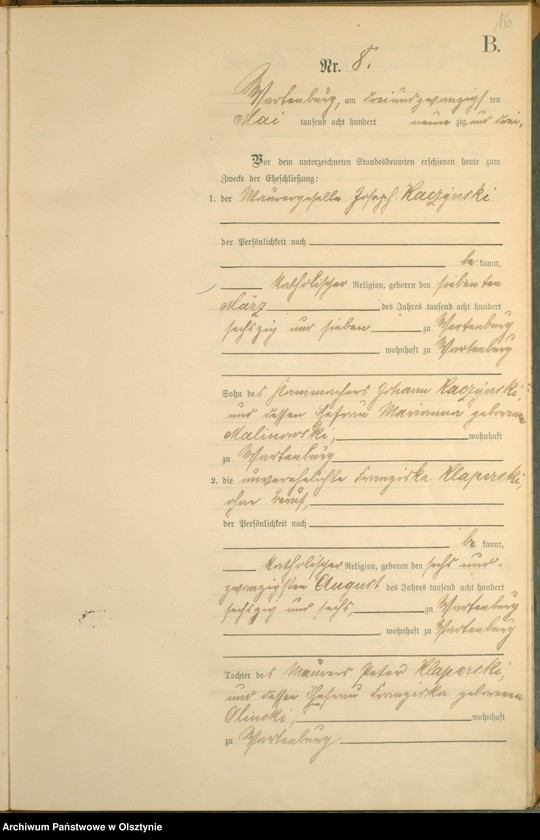 16
B.
Nr. 8.
Wartenburg, am dreiundzwanzigsten
Mai tausend acht hundert neunzig und drei,
Vor dem unterzeichneten Standesbeamten erschienen heute zum
Zwecke der Eheschließung:
1. der Maurergeselle Joseph Kaczynski
der Persönlichkeit nach
bekannt,
katholischer Religion, geboren den siebenten
März des Jahres tausend acht hundert
sechszig und sieben zu Wartenburg
, wohnhaft zu Wartenburg
Sohn des Kammachers Johann Kaczynski,
und dessen Ehefrau Marianna geborenen
Malinowski, wohnhaft
zu Wartenburg
2. die unverehelichte Franziska Klaperski,
ohne Beruf,
der Persönlichkeit nach
bekannt,
katholischer Religion, geboren den sechs und-
zwanzigsten August des Jahres tausend acht hundert
sechszig und sechs, zu Wartenburg
, wohnhaft zu Wartenburg
Tochter des Maurers Peter Klaperski,
und dessen Ehefrau Franziska geborenen
Olinski, wohnhaft
zu Wartenburg
Archiwum Państwowe w Olsztynie